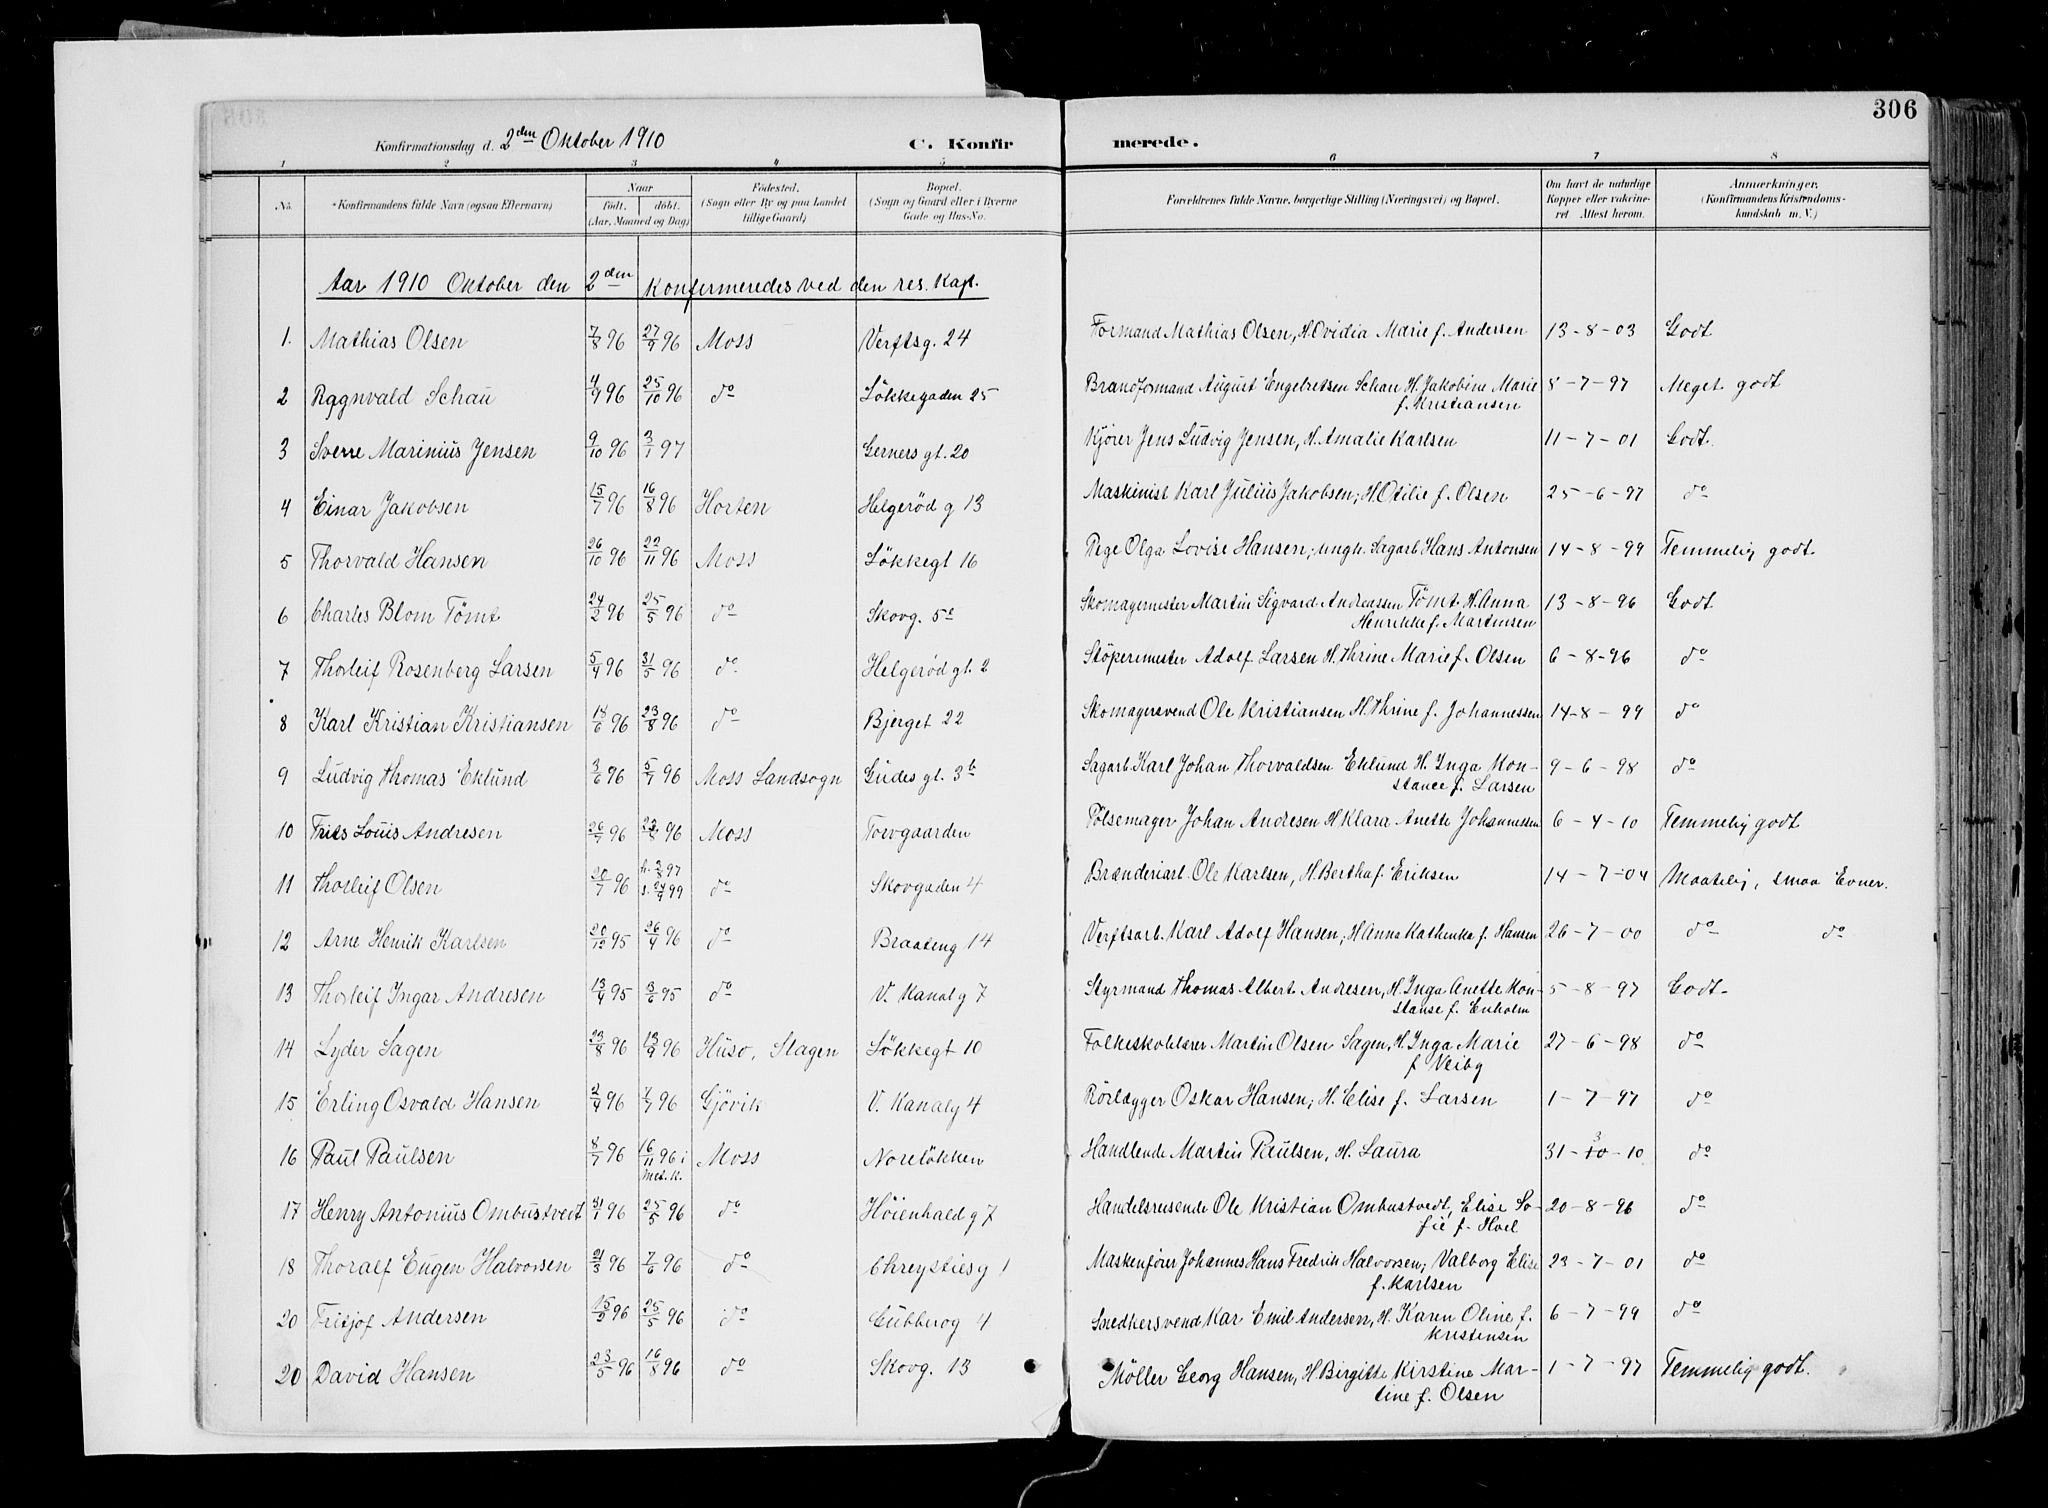 306
Konfirmationsdag d. 2den Oktober 1910 C. Konfirmerede.
1 2 3 4 5 6 7 8
No. *Konfirmandens fulde Navn (ogsaa Efternavn) Naar født. døbt. (Aar, Maaned og Dag) Fødested. (Sogn eller By og paa Landet tillige Gaard) Bopæl. (Sogn og Gaard eller i Byerne Gade og Hus-No. Forældrenes fulde Navne, borgerlige Stilling (Næringsvei) og Bopæl. Om havt de naturlige Kopper eller vaccineret Attest herom. Anmærkninger. (Konfirmandens Kristendomskundskab m. V.)
Aar 1910 Oktober den 2den Konfirmeredes ved den res. Kap.
1. Mathias Olsen 7/8 96 27/9 96 Moss Verftsg. 24 Formand Mathias Olsen, H. Ovidia Marie f. Andersen 13-8-03 Godt
2 Ragnvald Schau 4/9 96 25/10 96 do Løkkegaden 25 Brandformand August Engebretsen Schau H. Jakobine Marie f. Kristiansen 8-7-97 Meget godt
3 Sverre Marinius Jensen 9/10 96 3/1 97 Gerners gt. 20 Kjører Jens Ludvig Jensen, H. Amalie Karlsen 11-7-01 Godt.
4 Einar Jakobsen 15/7 96 16/8 96 Horten Helgerød g 13 Maskinist Karl Julius Jakobsen; H. Otilie f. Olsen 25-6-97 do
5 Thorvald Hansen 26/10 96 22/11 96 Moss Løkkegt 16 Pige Olga Lovise Hansen; ungk. Sagarb Hans Antonsen 14-8-99 Temmelig godt.
6 Charles Blom Tømt 24/2 96 25/5 96 do Skovg. 5c Skomagermester Martin Sigvard Andreassen Tømt. H. Anna Henrikke f. Martinsen 13-8-96 Godt
7 Thorleif Rosenberg Larsen 5/4 96 31/5 96 do Helgerød gt. 2 Støperimester Adolf Larsen H. Thrine Marie f. Olsen 6-8-96 do
8 Karl Kristian Kristiansen 18/6 96 23/8 96 do Bjerget 22 Skomagersvend Ole Kristiansen H. Thrine f. Johannessen 14-8-99 do
9 Ludvig Thomas Eklund 3/6 96 5/7 96 Moss Landsogn Gudes gt. 3b Sagarb. Karl Johan Thorvaldsen Eklund H. Inga Konstance f. Larsen 9-6-98 do
10 Frits Louis Andresen 26/7 96 96 Moss Torvgaarden Pølsemager Johan Andresen H. Klara Anette Johannessen 6-4-10 Temmelig godt
11 Thorleif Olsen 20/7 96 97 99 do Skovgaden 4 Brænderiarb. Ole Karlsen, H. Bertha f. Eriksen 14-7-04 Maatelig, smaa Evner.
12 Arne Henrik Karlsen 20/12 95 26/4 96 do Braateng 14 Verftsarb. Karl Adolf Hansen, H. Anna Kathinka f. Hansen 26-7-00 do do
13 Thorleif Ingar Andresen 13/4 95 3/6 95 do V. Kanalg 7 Styrmand Thomas Albert Andresen, H. Inga Anette Konstanse f. Enholm 5-8-97 Godt.
14 Lyder Sagen 23/8 96 13/9 96 Husø, Stagen Løkkegt 10 Folkeskolelærer Martin Olsen Sagen, H. Inga Marie f Veiby 27-6-98 do
15 Erling Osvald Hansen 2/4 96 96 Gjøvik V. Kanalg 4 Rørlægger Oskar Hansen; H. Elise f. Larsen 1-7-97 do
16 Paul Paulsen 8/7 96 16/11 96 i Met.k. Moss Noreløkken Handlende Martin Paulsen, H. Laura 31-3-10 do
17 Henry Antonius Ombustvedt 31/1 96 25/5 96 do Høienhald g 7 Handelsreisende Ole Kristian Ombustvedt, Elise Sofie f. Hoel 20-8-96 do
18 Thoralf Eugen Halvorsen 21/3 96 7/6 96 do Chrystiesg 1 Maskinfører Johannes Hans Fredrik Halvorsen; Valborg Elise f. Karlsen 23-7-01 do
20 Fritjof Andersen 15/3 96 25/5 96 do Gubberog 4 Snedkersvend Kar Emil Andersen, H. Karen Oline f. Kristensen 6-7-99 do
20 David Hansen 23/5 96 16/8 96 do Skovg. 13 Møller Georg Hansen, H. Birgitte Kirstine Martine f. Olsen 1-7-97 Temmelig godt.